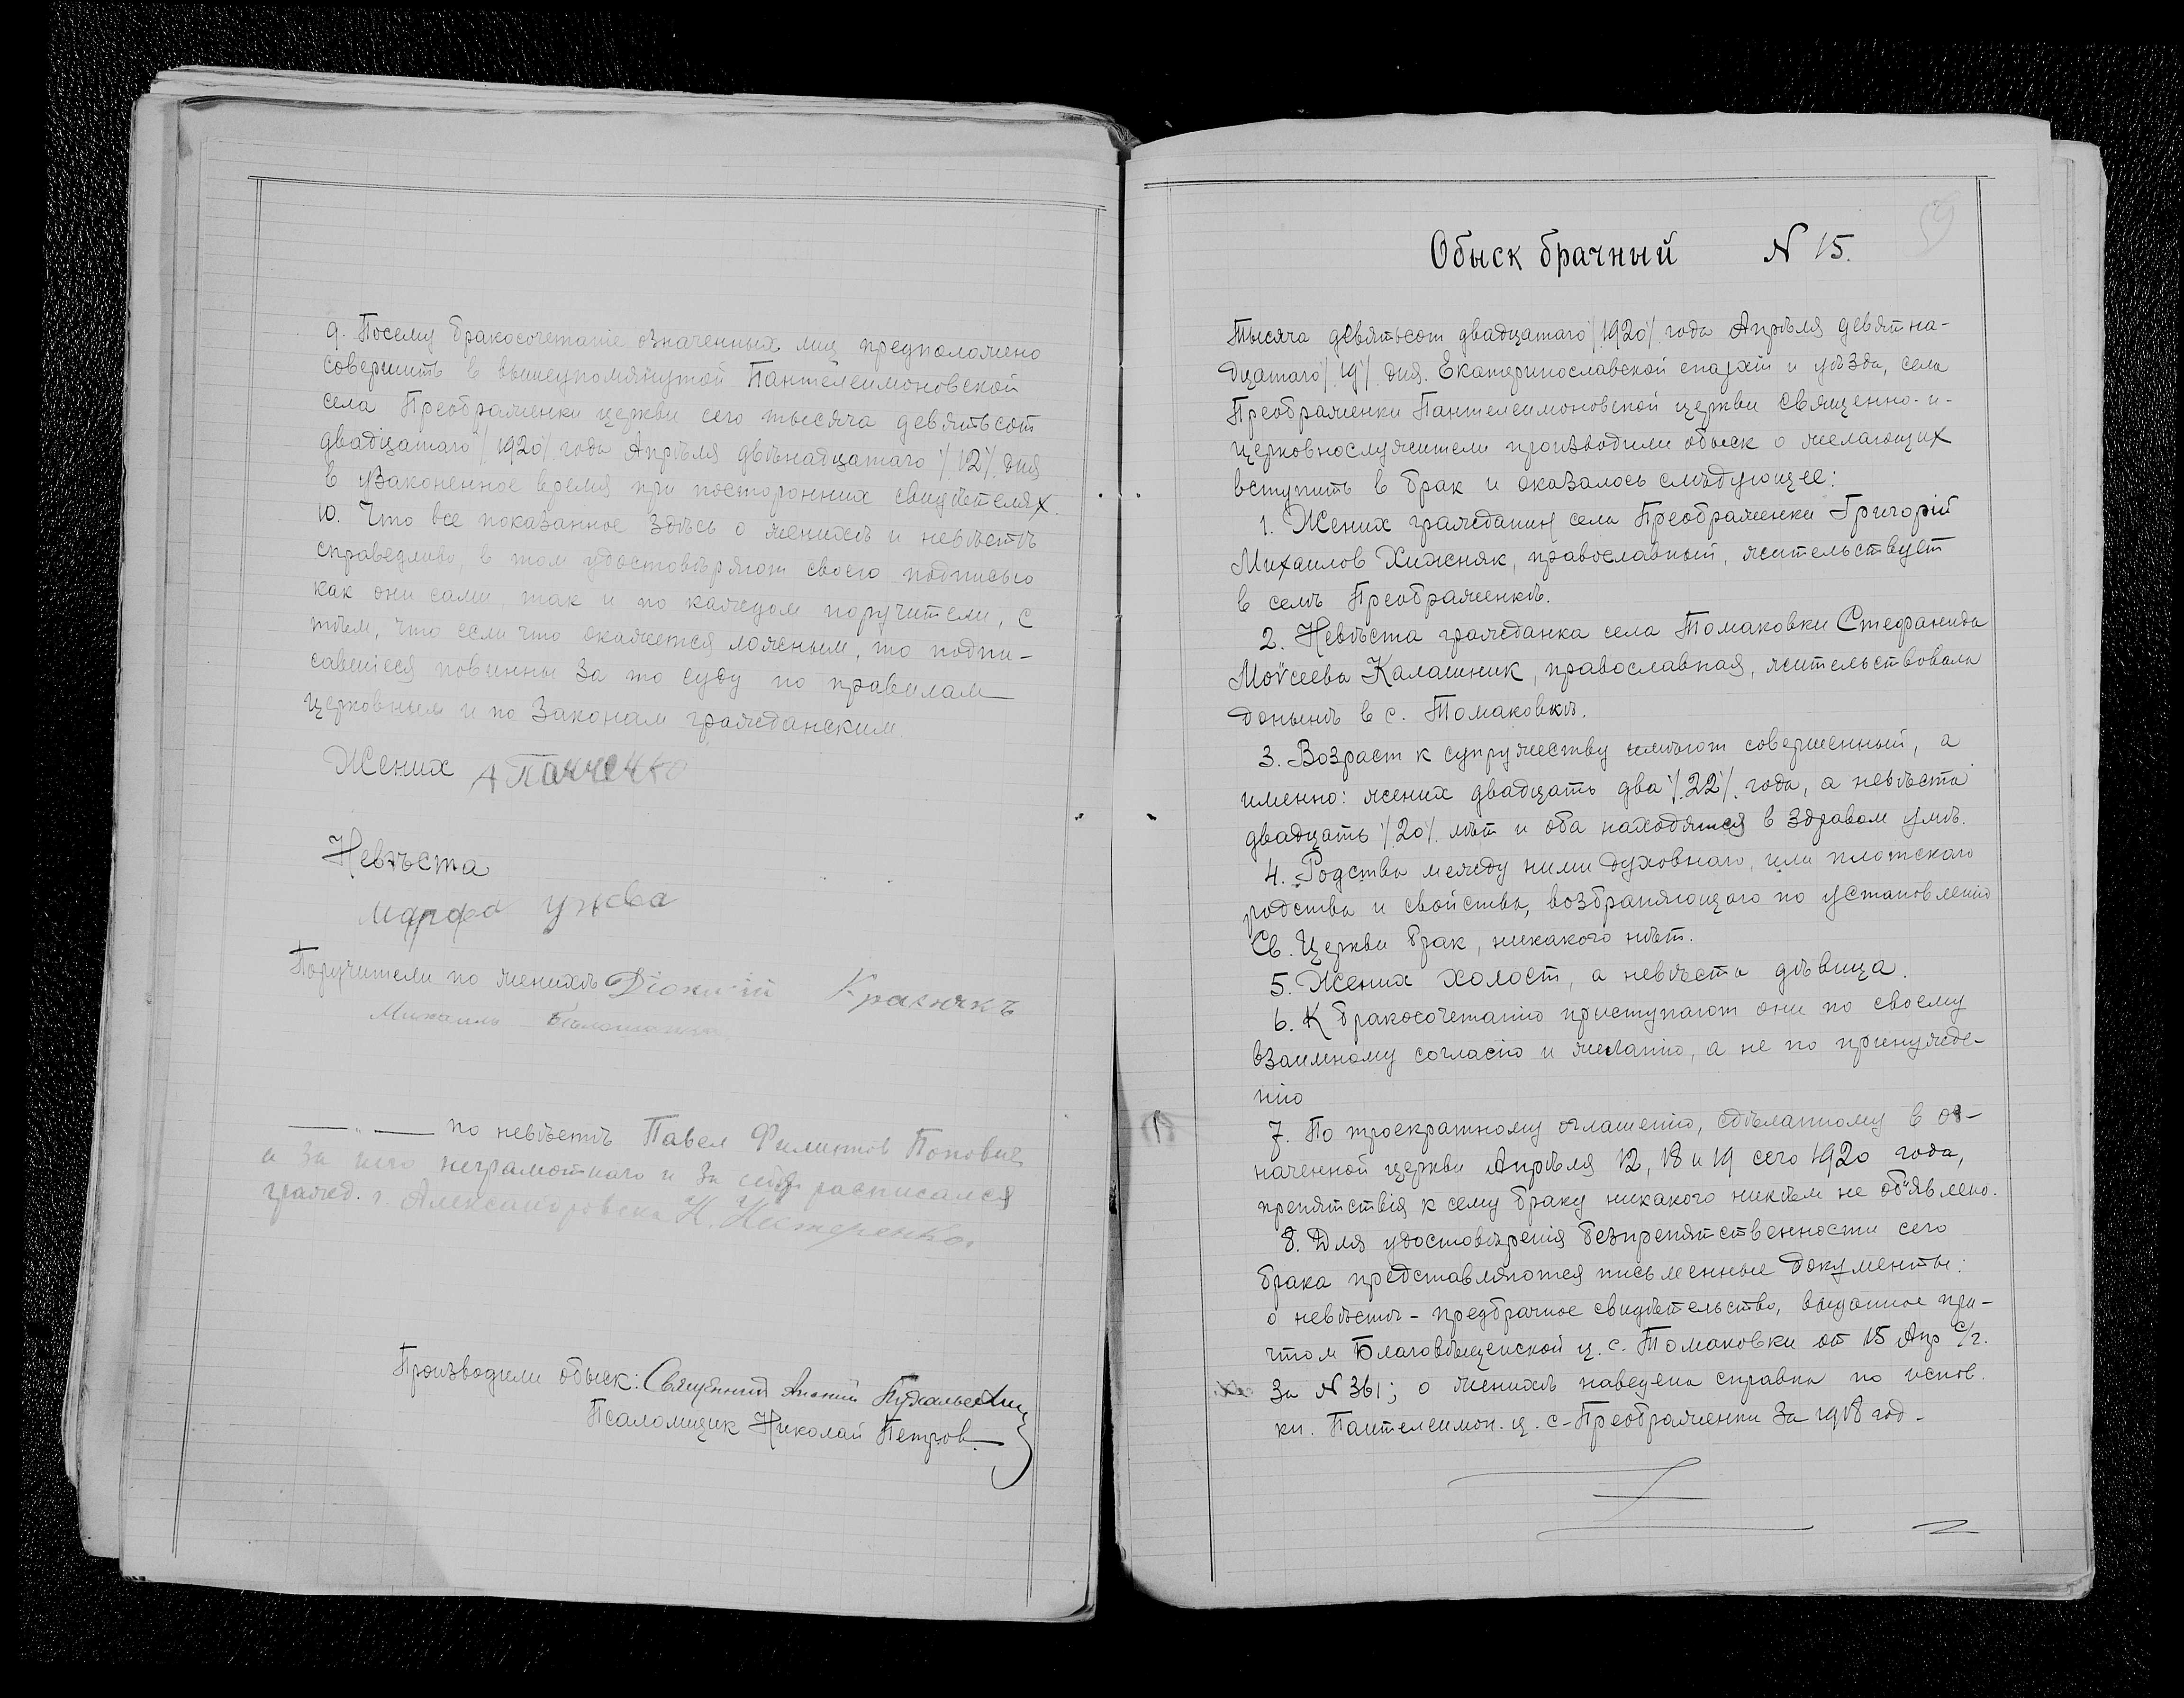 9. Посему бракосочетаніе означенных лиц предположено
совершить в вышеупомянутой Пантелеимоновской
села Преображенки церкви сего тысяча девятьсот
двадцатаго /1920/ года Апрѣля двѣнадцатаго /12/ дня
в узаконенное время при посторонних свидѣтелях.
10. Что все показанное здѣсь о женихѣ и невѣстѣ
справедливо, в том удостовѣряют своею подписью
как они сами так и по каждом поручители, с
тѣм, что если что окажется ложным, то подпи-
савшіеся повинны за то суду по правилам
церковным и по законам гражданским.
Жених А Панченко
Невѣста
Марфа
Поручители по женихѣ
Михаилъ
— " — по невѣстѣ Павел Филиппов Попович
а за него неграмотнаго и за себя расписался
гражд. г. Александровска Н. Нестеренко.
Производили обыск: Священник
Псаломщик Николай Петров
Обыск брачный N 15.
59
Тысяча девятьсот двадцатаго /1920/ года Апрѣля девятна-
дцатаго /19/ дня. Екатеринославской епархіи и уѣзда, села
Преображенки Пантелеимоновской церкви священно-и-
церковнослужители производили обыск о желающих
вступить в брак и оказалось слѣдующее:
1. Жених гражданин села Преображенки Григорій
Михаилов Хижняк, православный, жительствует
в селѣ Преображенкѣ.
2. Невѣста гражданка села Томаковки Стефанида
Моѵсеева Калашник, православная, жительствовала
донынѣ в с. Томаковкѣ.
3. Возраст к супружеству имѣют совершенный, а
именно: жених двадцать два /22/ года, а невѣста
двадцать /20/ лѣт и оба находятся в здравом умѣ.
4. Родства между ними духовнаго, или плотскаго
родства и свойства, возбраняющаго по установленію
Св. Церкви брак, никакого нѣт.
5. Жених холост, а невѣста дѣвица.
6. К бракосочетанію приступают они по своему
взаимному согласію и желанію, а не по принужде-
нію
7. По троекратному оглашенію, сдѣланному в оз-
наченной церкви Апрѣля 12, 18 и 19 сего 1920 года,
препятствія к сему браку никакого никѣм не объявлено.
8. Для удостовѣренія безпрепятственности сего
брака представляются письменные документы:
о невѣстѣ - предбрачное свидѣтельство, выданное при-
чтом Благовѣщенской ц. с. Томаковки от 15 Апр с/г.
за N 361; о женихѣ наведена справка по испов.
кн. Пантелеимон. ц. с-Преображенки за 1918 год -